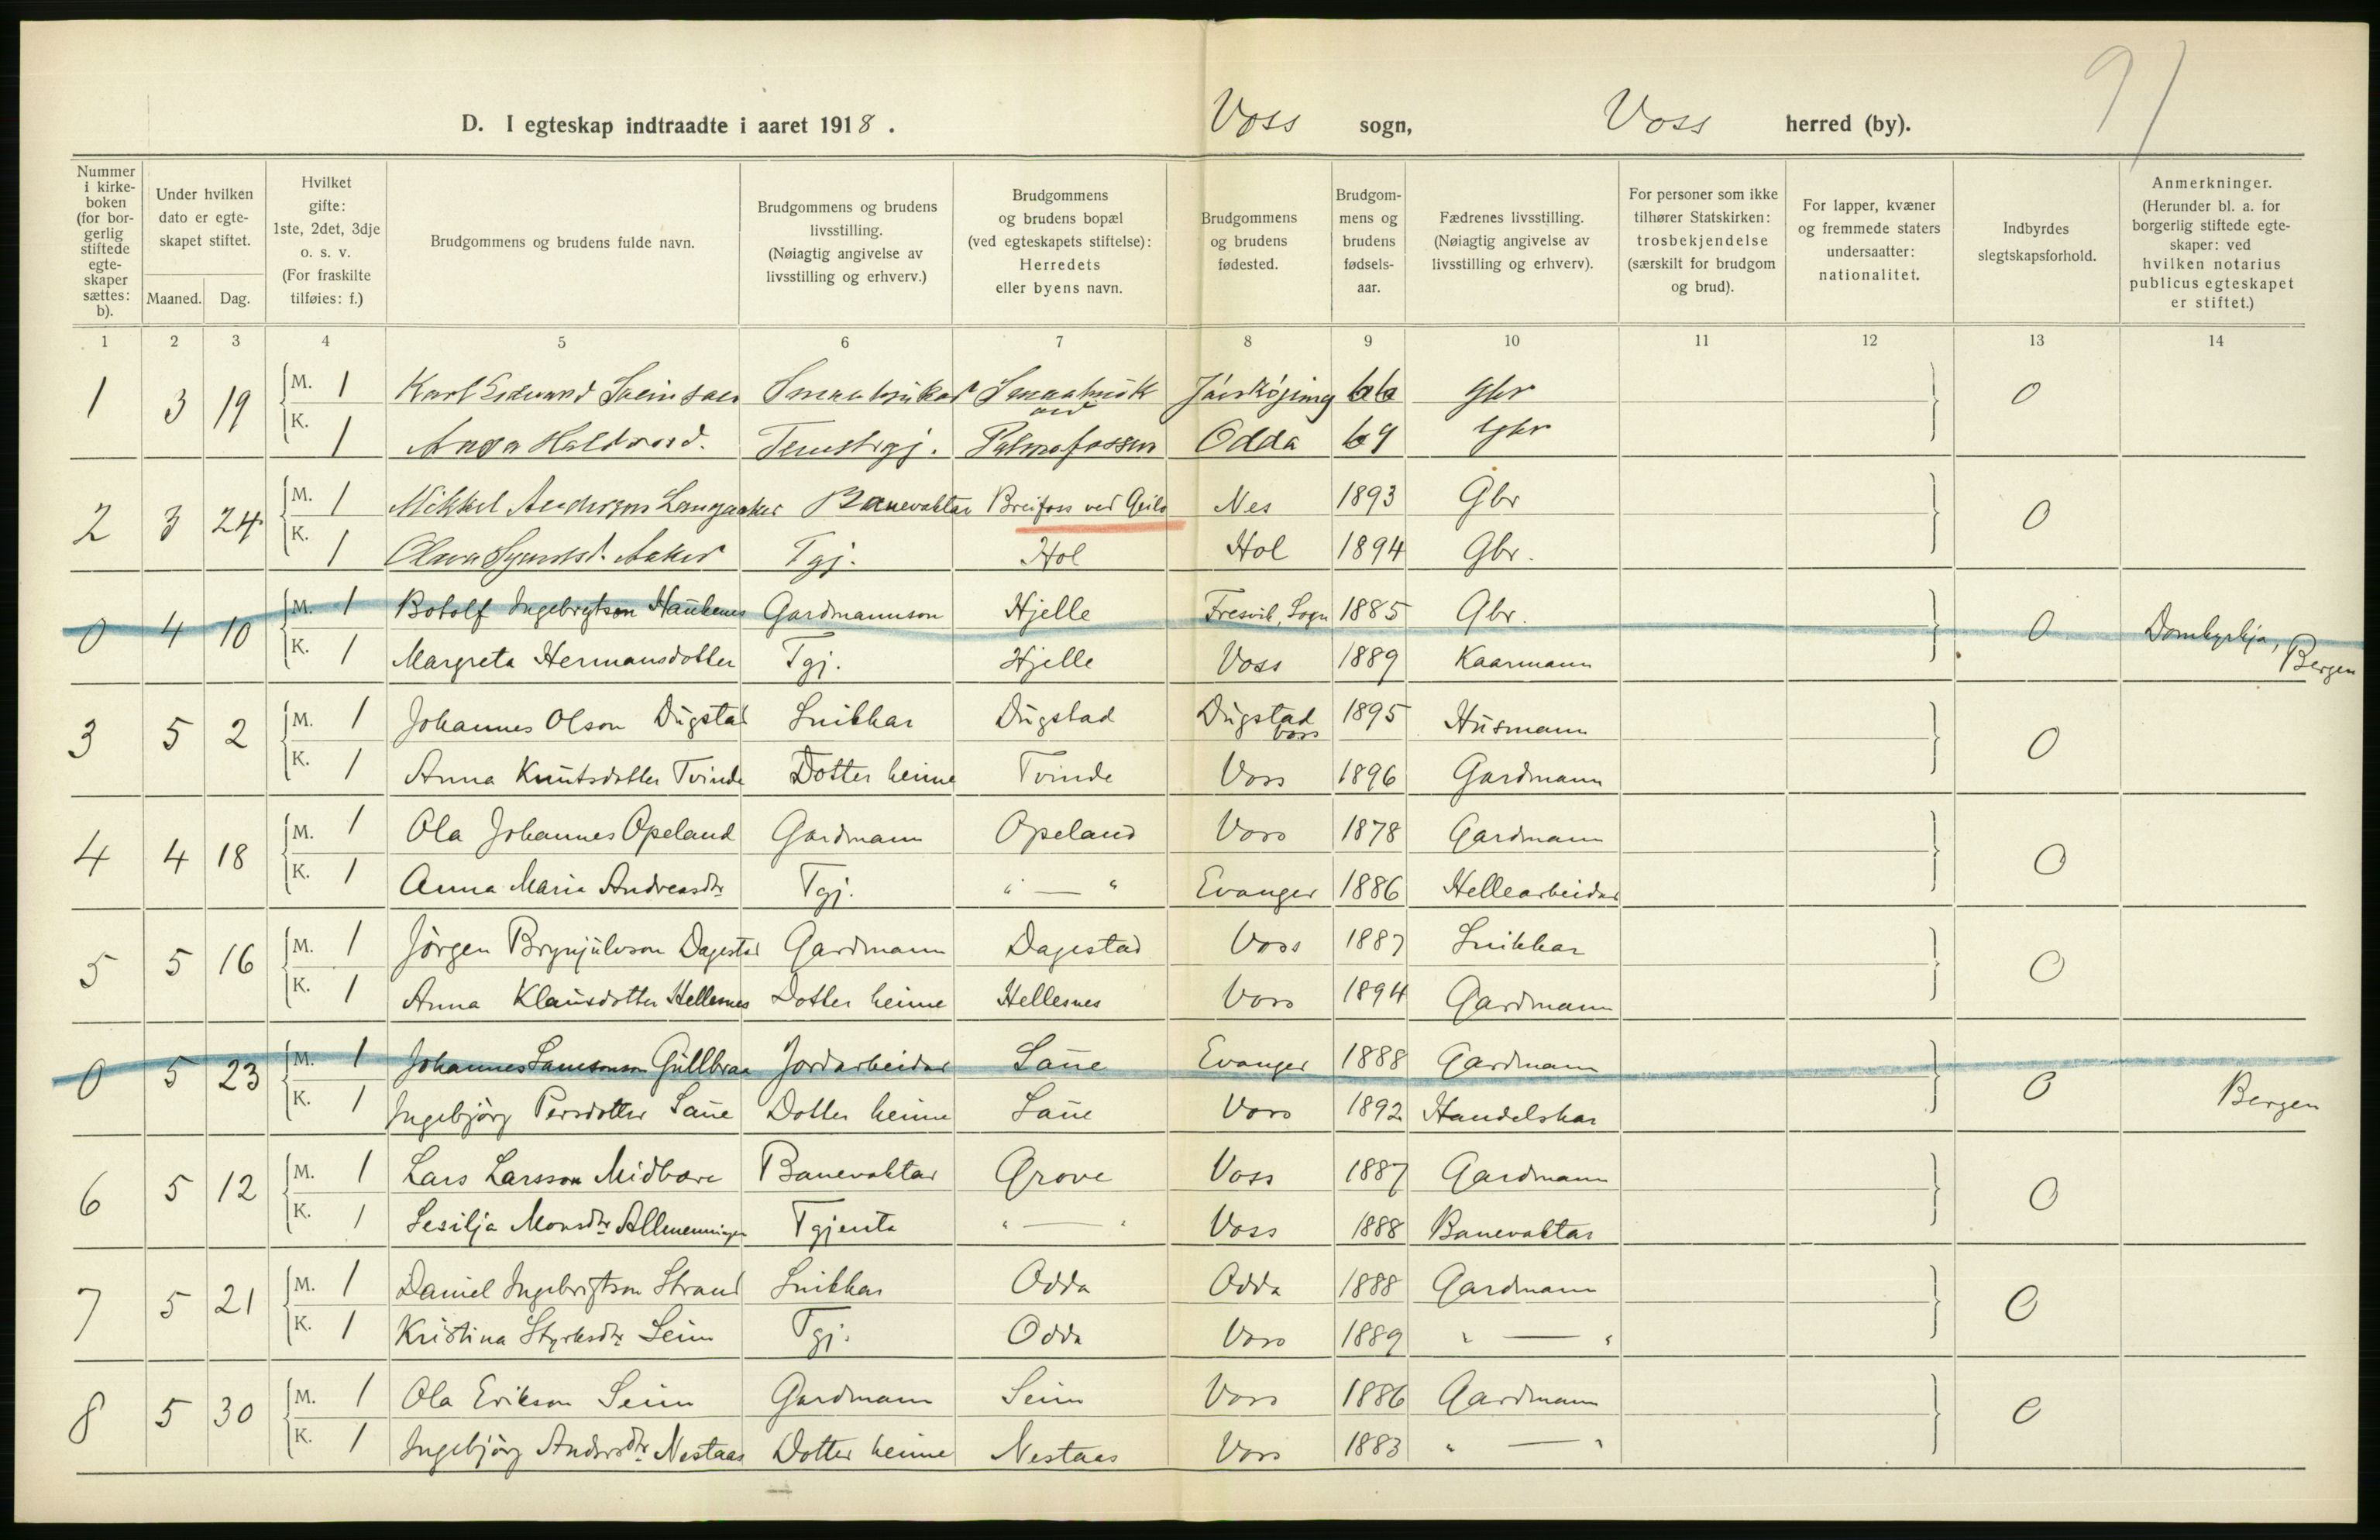 91
D. I egteskap indtraadte i aaret 1918. Voss sogn, Voss herred (by).
Nummer i kirkeboken (for borgerlig stiftede egteskaper sættes: b). Under hvilken dato er egteskapet stiftet. Maaned. Dag. Hvilket gifte: 1ste, 2det, 3dje o. s. v. (For fraskilte tilføies: f.) Brudgommens og brudens fulde navn. Brudgommens og brudens livsstilling. (Nøiagtig angivelse av livsstilling og erhverv.) Brudgommens og brudens bopæl (ved egteskapets stiftelse): Herredets eller byens navn. Brudgommens og brudens fødested. Brudgommens og brudens fødselsaar. Fædrenes livsstilling. (Nøiagtig angivelse av livsstilling og erhverv). For personer som ikke tilhører Statskirken: trosbekjendelse (særskilt for brudgom og brud). For lapper, kvæner og fremmede staters undersaatter: nationalitet. Indbyrdes slegtskapsforhold. Anmerkninger. (Herunder bl. a. for borgerlig stiftede egteskaper: ved hvilken notarius publicus egteskapet er stiftet.)
1 2 3 4 5 6 7 8 9 10 11 12 13 14
1 3 19 M. 1 Karl 66 Gbr 0
K. 1 Anna Tenestgj. ved Palmafossen Odda 69 Gbr
2 3 24 M. 1 Mikkel Anderson Langaaker Banevaktar Breifoss ved Geilo Nes 1893 Gbr 0
K. 1 Aaker Tgj. Hol Hol 1894 Gbr.
0 4 10 M. 1 Botolf Ingebrigtson Haukenes Gardmannson Hjelle Fresvik, Sogn 1885 Gbr. 0 Domkyrkja, Bergen
K. 1 Margreta Hermansdotter Tgj. Hjelle Voss 1889 Kaarmann
3 5 2 M. 1 Johannes Olson Dugstad Snikkar Dugstad Dugstad Voss 1895 Husmann 0
K. 1 Anna Knutsdotter Tvinde Dotter heime Tvinde Voss 1896 Gardmann
4 4 18 M. 1 Ola Johannes Opeland Gardmann Opeland Voss 1878 Gardmann 0
K. 1 Anna Maria Andreasdtr Tgj. " — " Evanger 1886 Hellearbeidar
5 5 16 M. 1 Jörgen Brynjulvson Dagestad Gardmann Dagestad Voss 1887 Snikkar 0
K. 1 Anna Klausdotter Hellesnes Dotter heime Hellesnes Voss 1894 Gardmann
0 5 23 M. 1 Johannes Samsonson Gullbraa Jordarbeidar Saue Evanger 1888 Gardmann 0 Bergen
K. 1 Ingebjörg Persdotter Saue Dotter heime Saue Voss 1892 Handelskar
6 5 12 M. 1 Lars Larsson Midbære Banevaktar Grove Voss 1887 Gardmann 0
K. 1 Sesilja Monsdtr Allmenningen Tgjenta " — " Voss 1888 Banevaktar
7 5 21 M. 1 Daniel Ingebrigtson Strand Snikkar Odda Odda 1888 Gardmann 0
K. 1 Kristina Styrksdtr Seim Tgj. Odda Voss 1889 " — "
8 5 30 M. 1 Ola Erikson Seim Gardmann Seim Voss 1886 Gardmann 0
K. 1 Ingebjörg Andersdtr. Nestaas Dotter heime Nestaas Voss 1883 " — "